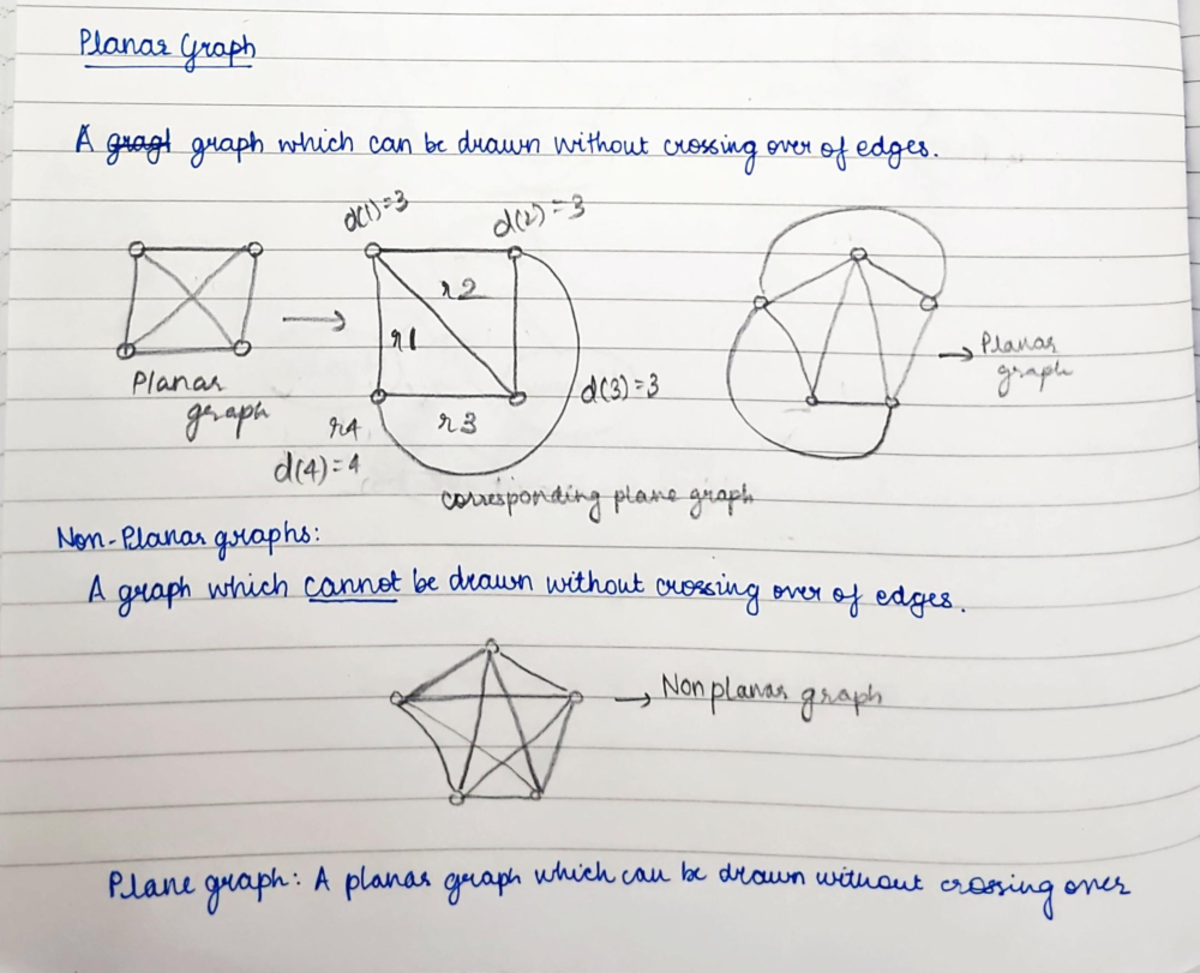 Planar Graph
A gragt graph which can be drawn without crossing over of edges.
d(1)=3
d(2)=3
r2
r1
Planar
graph
d(3)=3
→ Planar
graph
r4
r3
d(4)=4
corresponding plane graph
Non-Planar graphs:
A graph which cannot be drawn without crossing over of edges.
→ Non planar graph
Plane graph: A planar graph which can be drawn without crossing over